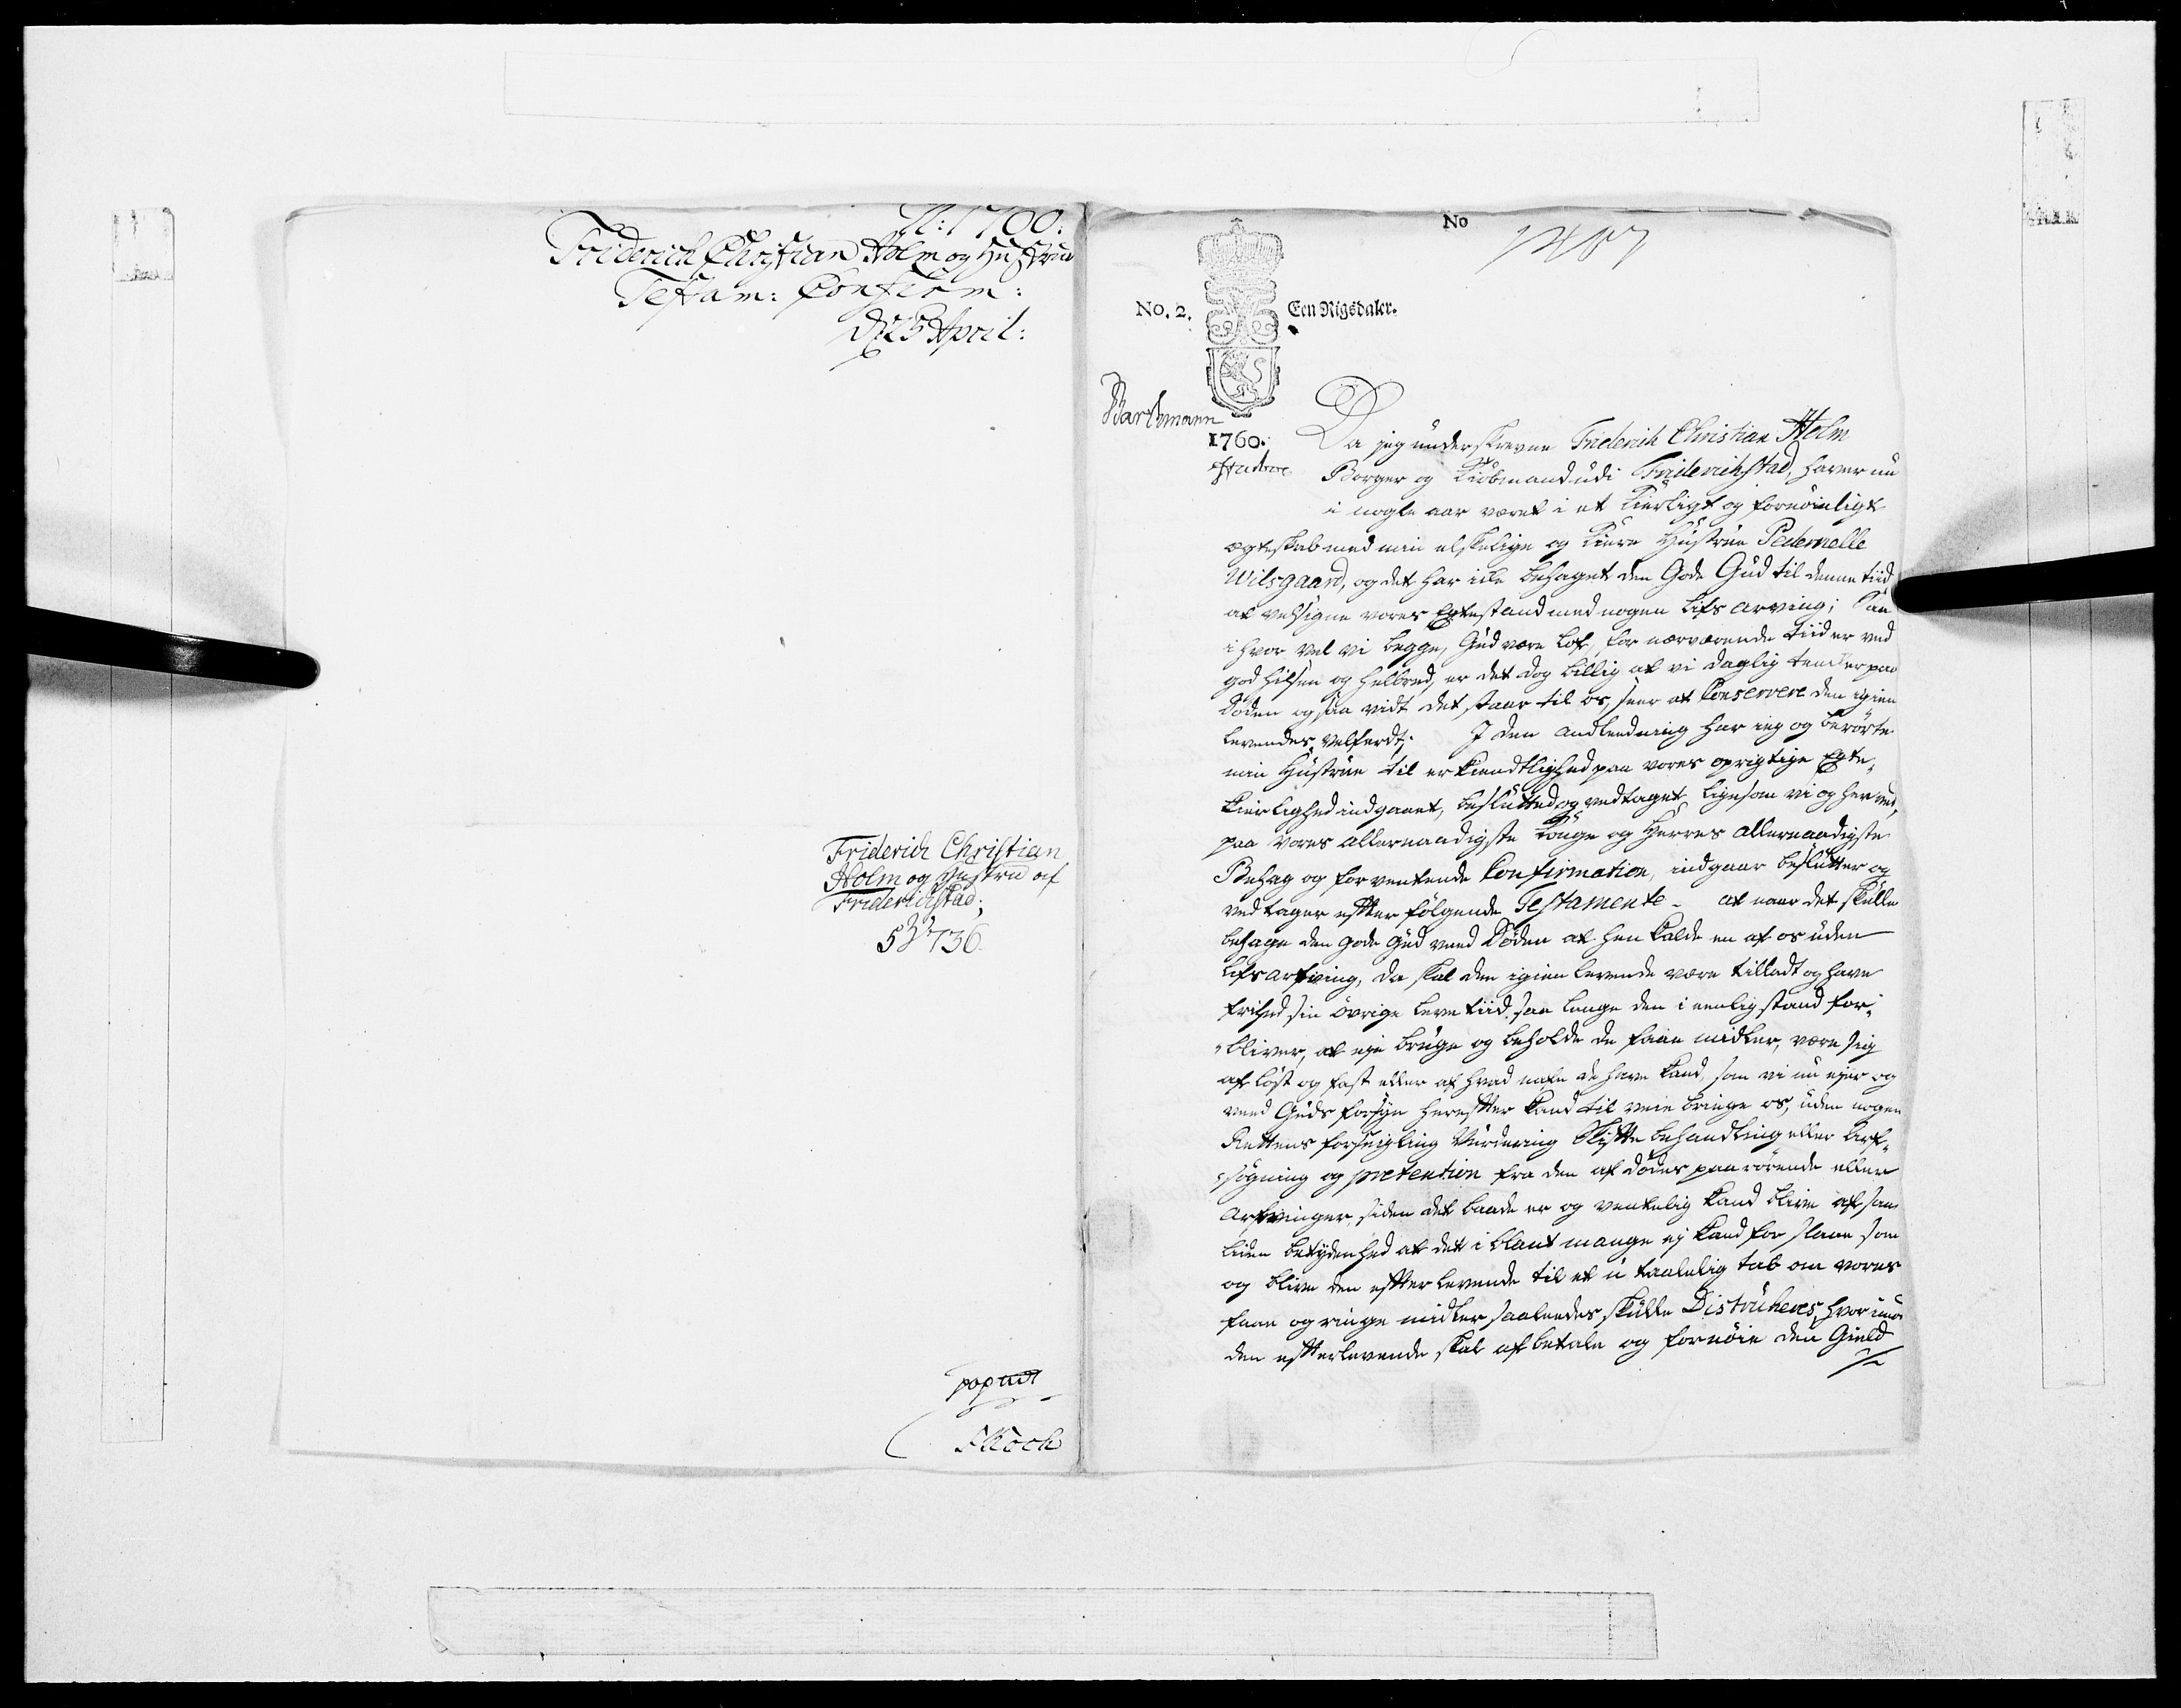 A: 1760:
Friderich Christian Holm og Hustrue
Testam: Confirm:
D 25 April:
Friderich Christian
Holm og Hustrue af
Friderichstad;
736
Koch
No
No. 2.
Een Rigsdaler.
Barthmann
1760.
Da jeg underskrevne Friderich Christian Holm
Borger og Kiøbmand udi Friderichstad, haver nu
i nogle aar været i et kierligt og fornøieligt
ægteskab med min elskelige og kiere Hustrue Pedernelle
Wilsgaard, og det har icke behaget den Gode Gud til denne tiid
at velsigne vores Egtestand med nogen Lifs arving; Saa
i hvor vel vi begge, Gud være lof, for nærværende tiid er ved
god hilsen og helbred, er det dog billig at vi daglig tencker paa
Døden og saa vidt det staar til os, seer at Conservere den igien
levendes velferdt; I den andleedning har ieg og berørte
min Hustrue til erkiendtlighed paa vores oprigtige Egte-
kierlighed indgaaet, beslutted og vedtaget, ligesom vi og herved,
paa vores allernaadigste Konge og Herres allernaadigste
Behag og forventende Confirmation, indgaar beslutter og
vedtager efter følgende Testamente - at naar det skulle
behage den gode Gud med Døden at hen kalde en af os uden
Lifs arfving, da skal den igien levende være tilladt og have
frihed sin øvrige leve tiid, saa lenge den i eenlig stand for-
bliver, at eje bruge og beholde de faae midler, være sig
af løst og fast eller af hvad nafn de have kand, som vi nu ejer og
med Guds forsyn herefter kand til veie bringe os, uden nogen
Rettens forseigling Vurdering Skifte behandling eller Arf-
søgning og pretention fra den af dødes paarørende eller
Arfvinger, siden det baade er og ventelig kand blive af saa
liden betydenhed at det i blant mange ej kand forslaae som
og blive den efterlevende til et utaalelig tab om vores
faae og ringe midler saaleedes skulle Distraheres, hvorimod
den efterlevende skal af betale og fornøie den Gield